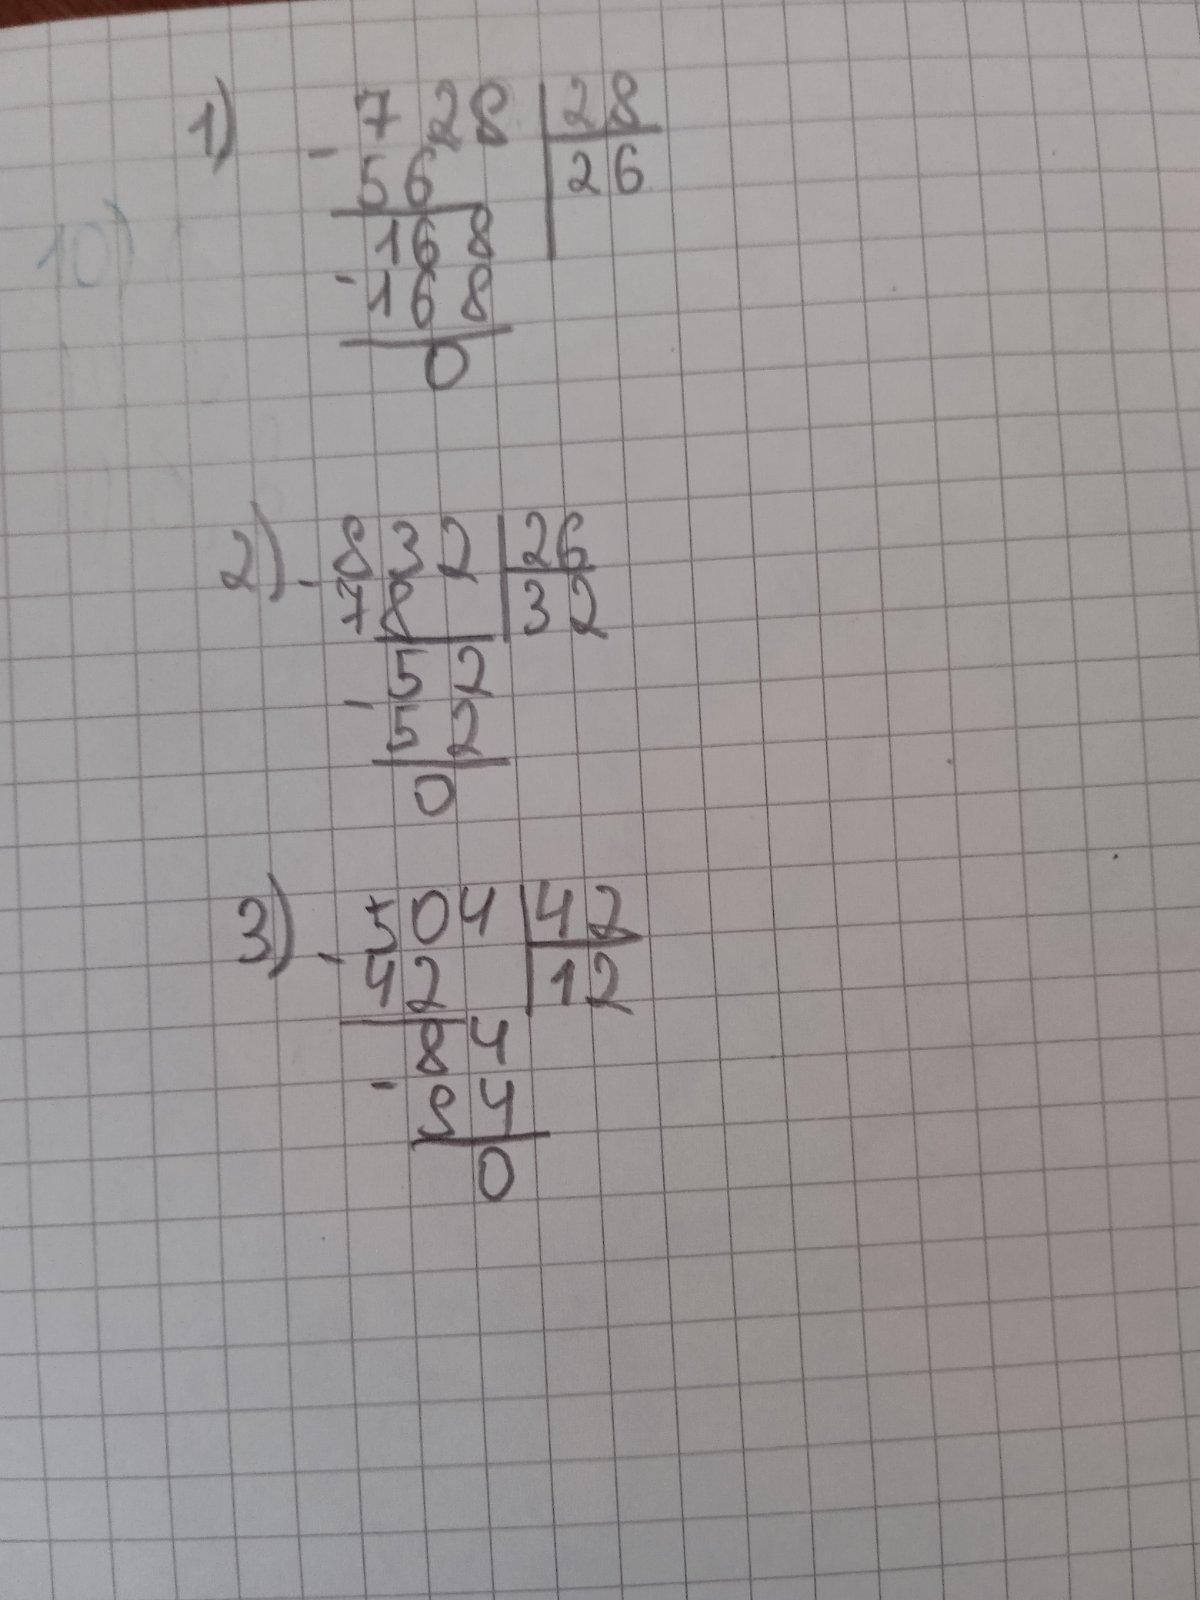 1) - 728 | 28
56 | 26
168
- 168
0
10)
2) - 832 | 26
78 | 32
- 52
52
0
3) - 504 | 42
42 | 12
84
- 84
0